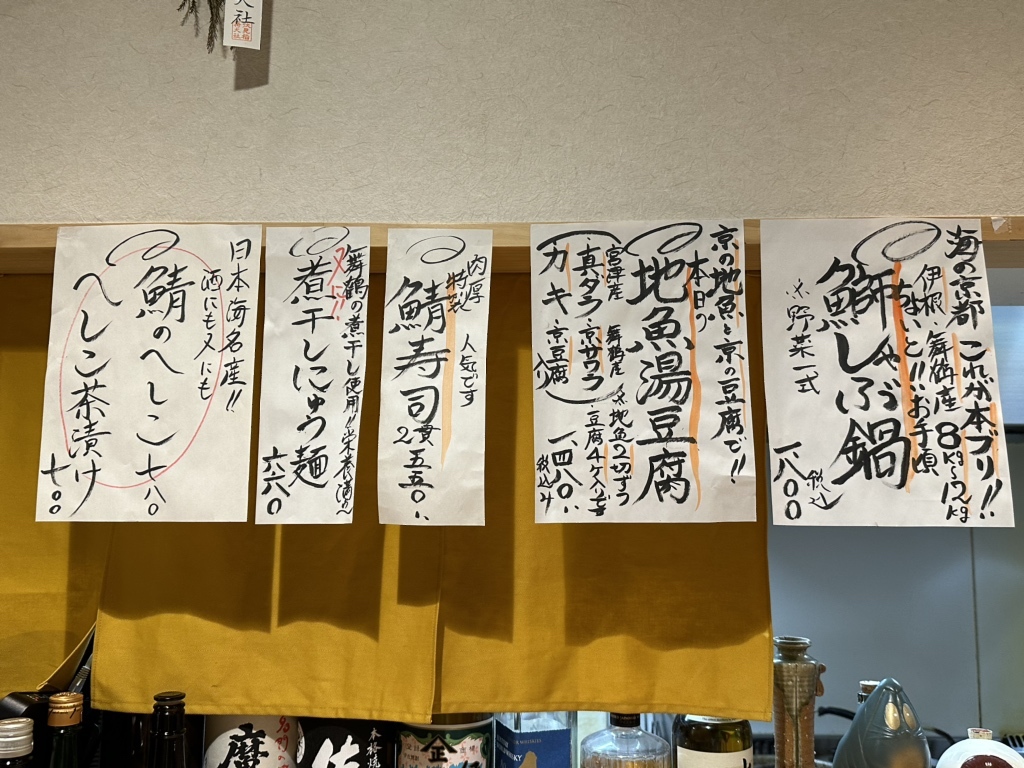 海の京都 これが本ブリ!!
伊根、舞鶴産 8kg〜12kg
ちょいと!!お手頃
鰤しゃぶ鍋
※野菜一式
一八〇〇
税込
京の地魚と京の豆腐で!!
本日の
地魚湯豆腐
宮津産 舞鶴産 ※地魚2切ずつ
真ダラ・京サワラ
豆腐4ケ入り
カキ・京豆腐
入り
一四八〇
税込み
肉厚 人気です
特製
鯖寿司
2貫 五五〇
舞鶴の煮干し使用!!栄養満点
煮干しにゅう麺
六六〇
日本海名産!!
酒にも〆にも
鯖のへしこ 七八〇
へしこ茶漬け
七〇〇
大社
魔
佐
本格焼